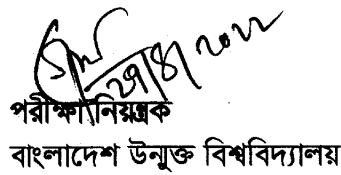 ২৭/৪/২০২২
পরীক্ষা নিয়ন্ত্রক
বাংলাদেশ উন্মুক্ত বিশ্ববিদ্যালয়